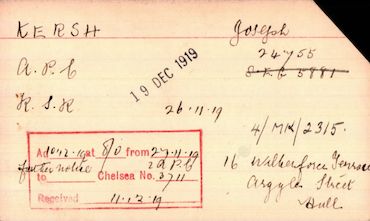 KERSH Joseph
24755
A.P.C S.E.C 5881
19 DEC 1919
R.S.R 26.11.19
4/MK/2315.
Ad at 8/0 from 27.11.19
further notice
to Chelsea No. 3711
Received 11.12.19
16 Wilberforce Terrace
Argyle Street
Hull